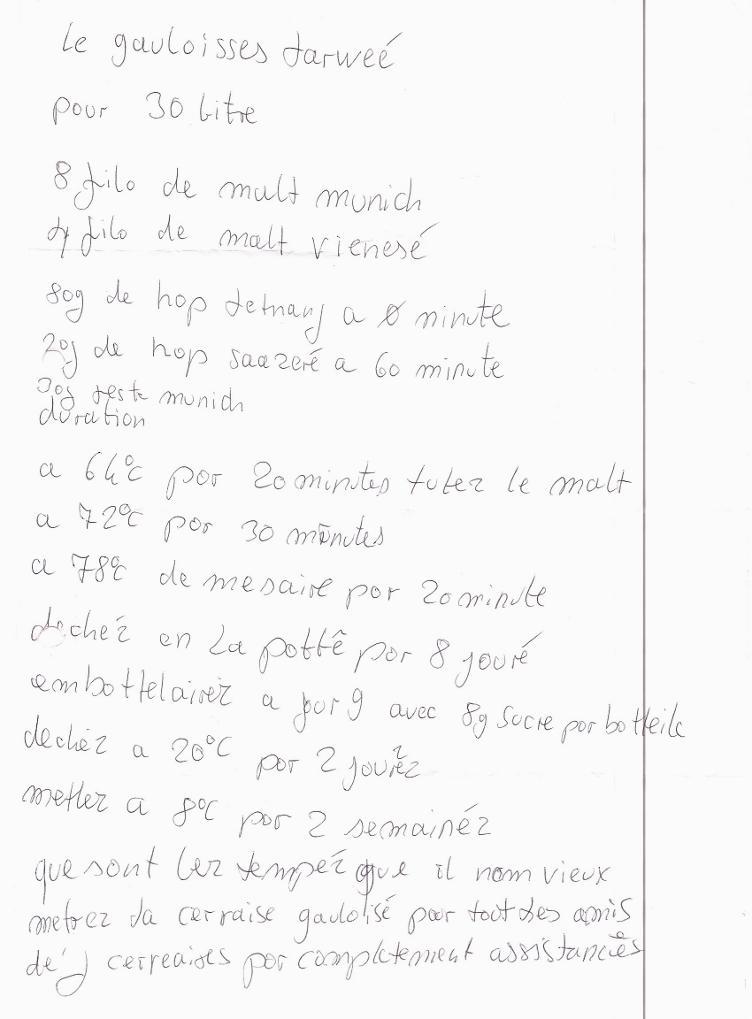 le gauloisses tarweé
pour 30 litre
8 filo de malt munich
4 filo de malt vienesé
80g de hop tetnang a 0 minute
20g de hop saazeré a 60 minute
30g munich
duration
a 64°c por 20 minutes le malt
a 72°c por 30 minutes
a 78°c de mesaire por 20 minute
dechéz en la pottê por 8 jouré
embottelairez a jour 9 avec 8g sucre por botteile
dechéz a 20°C por 2 jouréz
mettez a 8°C por 2 semainéz
que sont lez tempéz que il nom vieux
metrez da cerraise gaulolisé pour tout des amis
de cerreaises por completement assistanciês